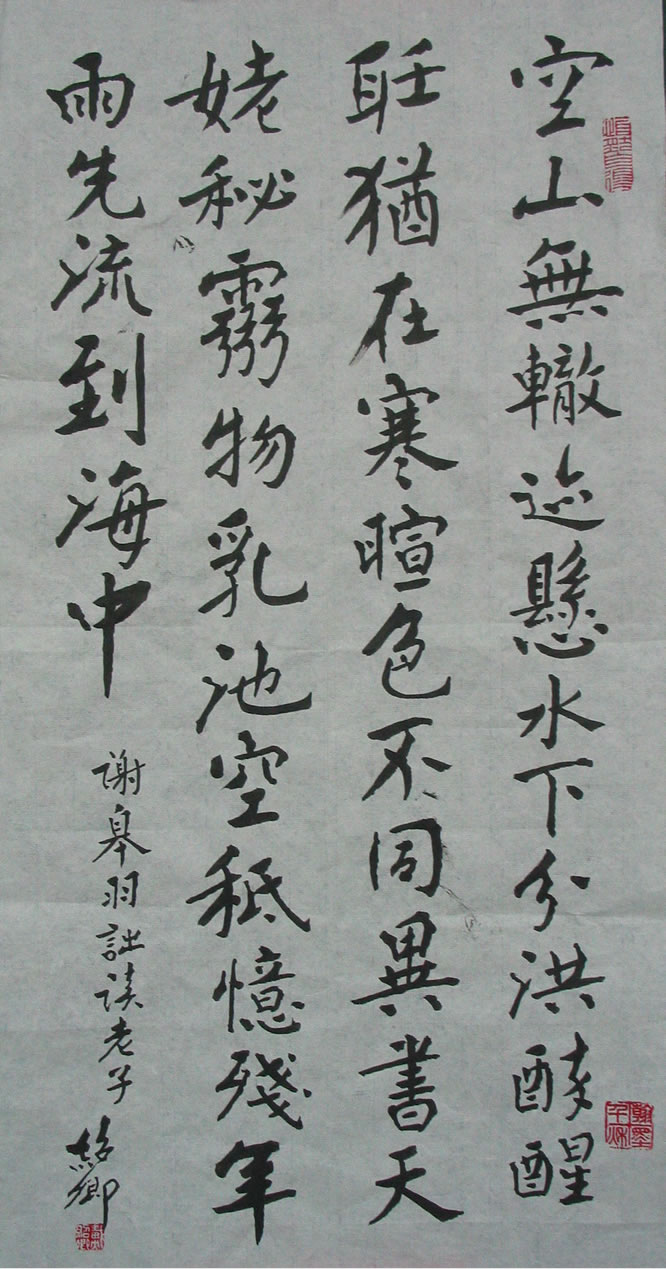 空山無轍迹懸水下分洪醉醒
猶在寒暄色不同異書天
姥秘物乳池空秪憶殘年
雨先流到海中
谢皋羽詘读老子
卿